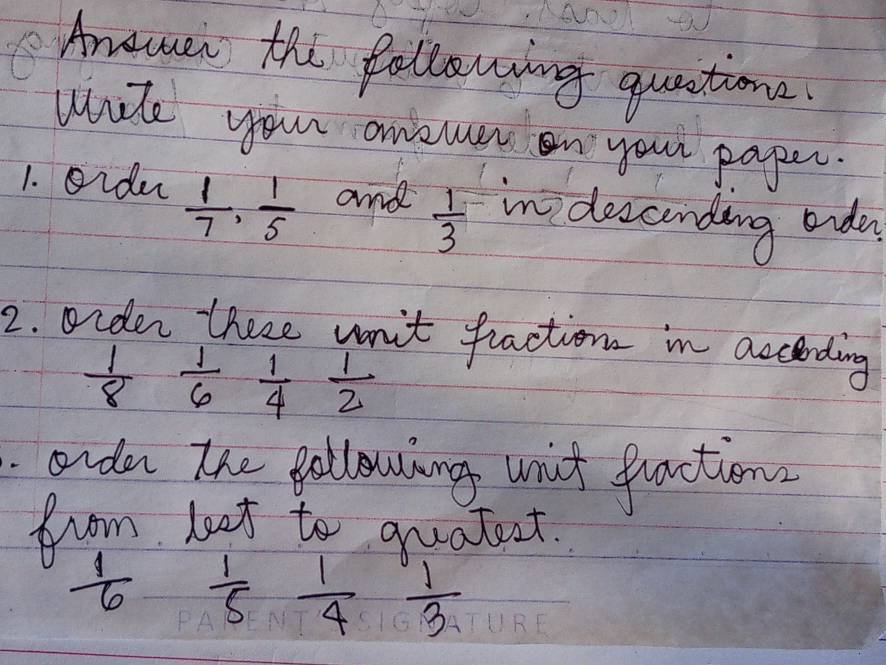 Answer the following questions.
Write your answer on your paper.
1. order 1/7, 1/5 and 1/3 in descending order.
2. order these unit fractions in ascending
1/8 1/6 1/4 1/2
. order the following unit fractions
from lest to greatest.
1/6 1/5 1/4 1/3
PARENT'S SIGNATURE